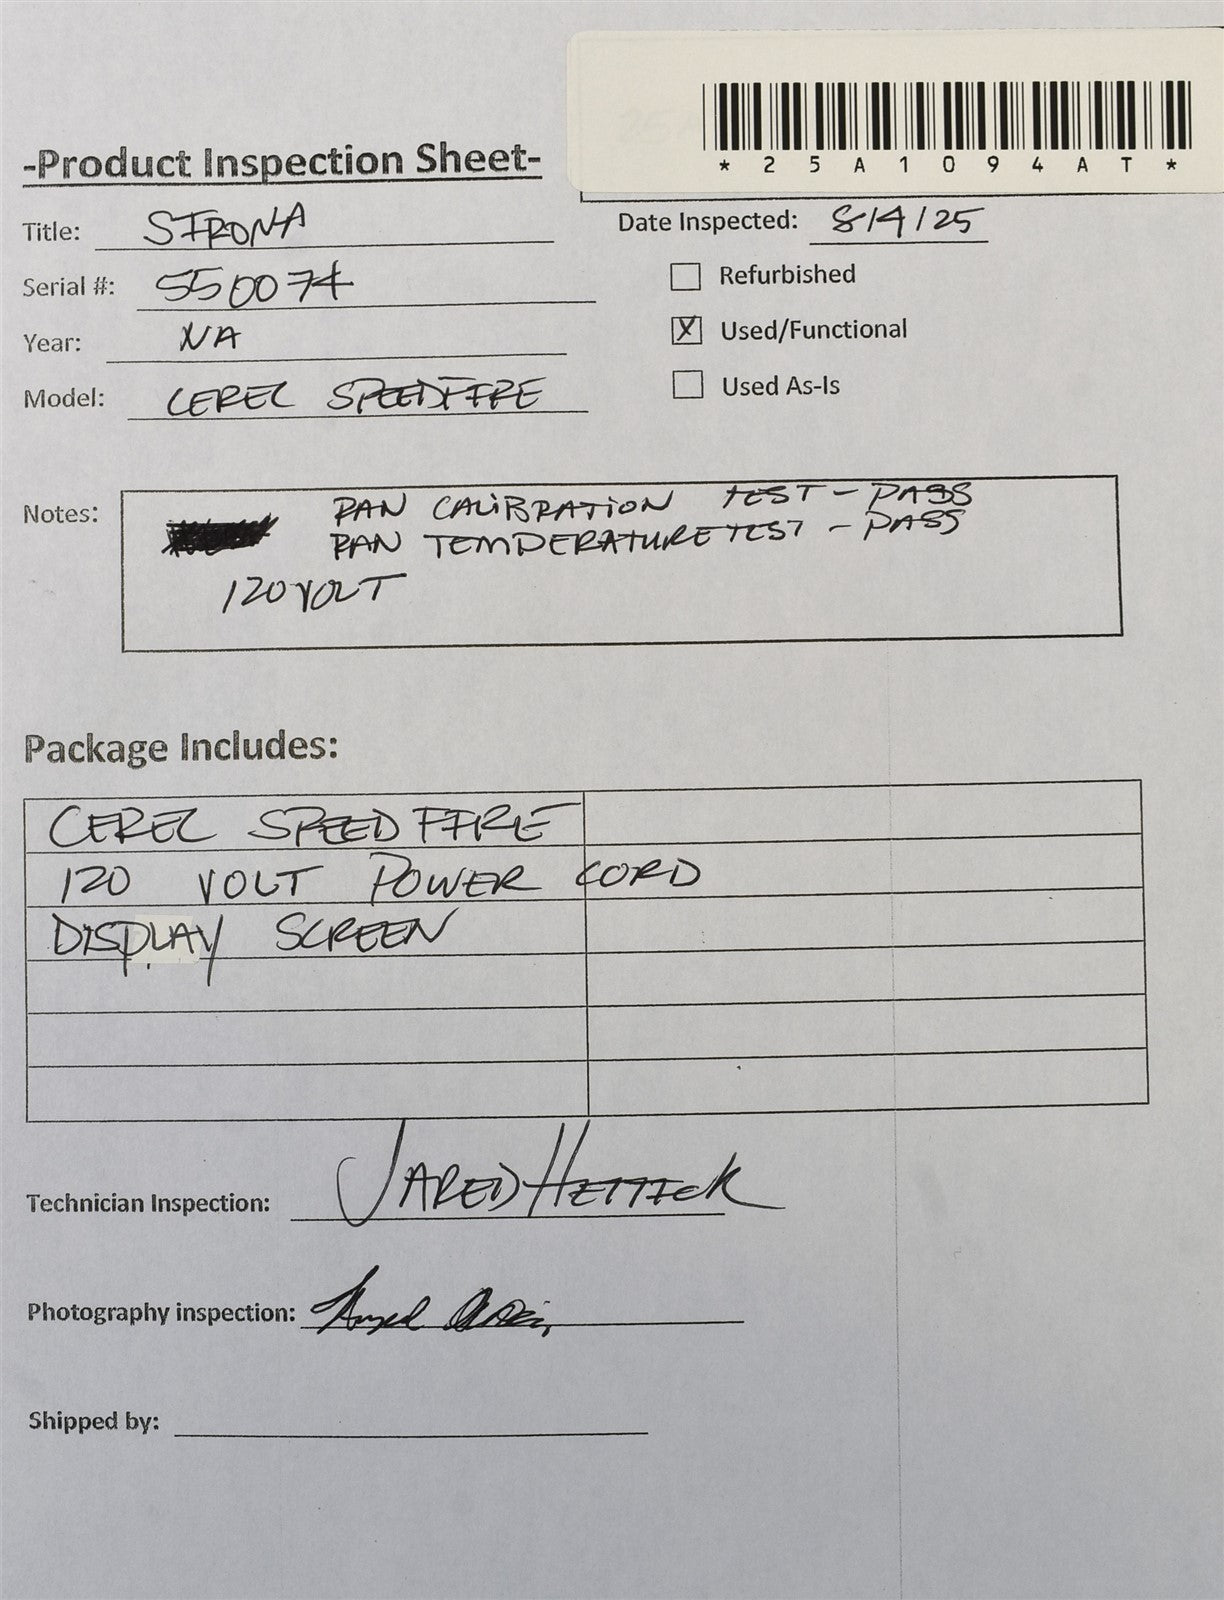 *25A1094AT*
-Product Inspection Sheet-
Title: SIRONA
Date Inspected: 8/4/25
Serial #: 550074
Refurbished
Year: NA
X Used/Functional
Model: CEREC SPEEDFIRE
Used As-Is
Notes: PAN CALiBRATION TEST - PASS
PAN TEMPERATURE TEST - PASS
120 VOLT
Package Includes:
CEREC SPEED FIRE
120 VOLT POWER CORD
DISPLAY SCREEN
Technician Inspection: JARED HETTICK
Photography inspection:
Shipped by: